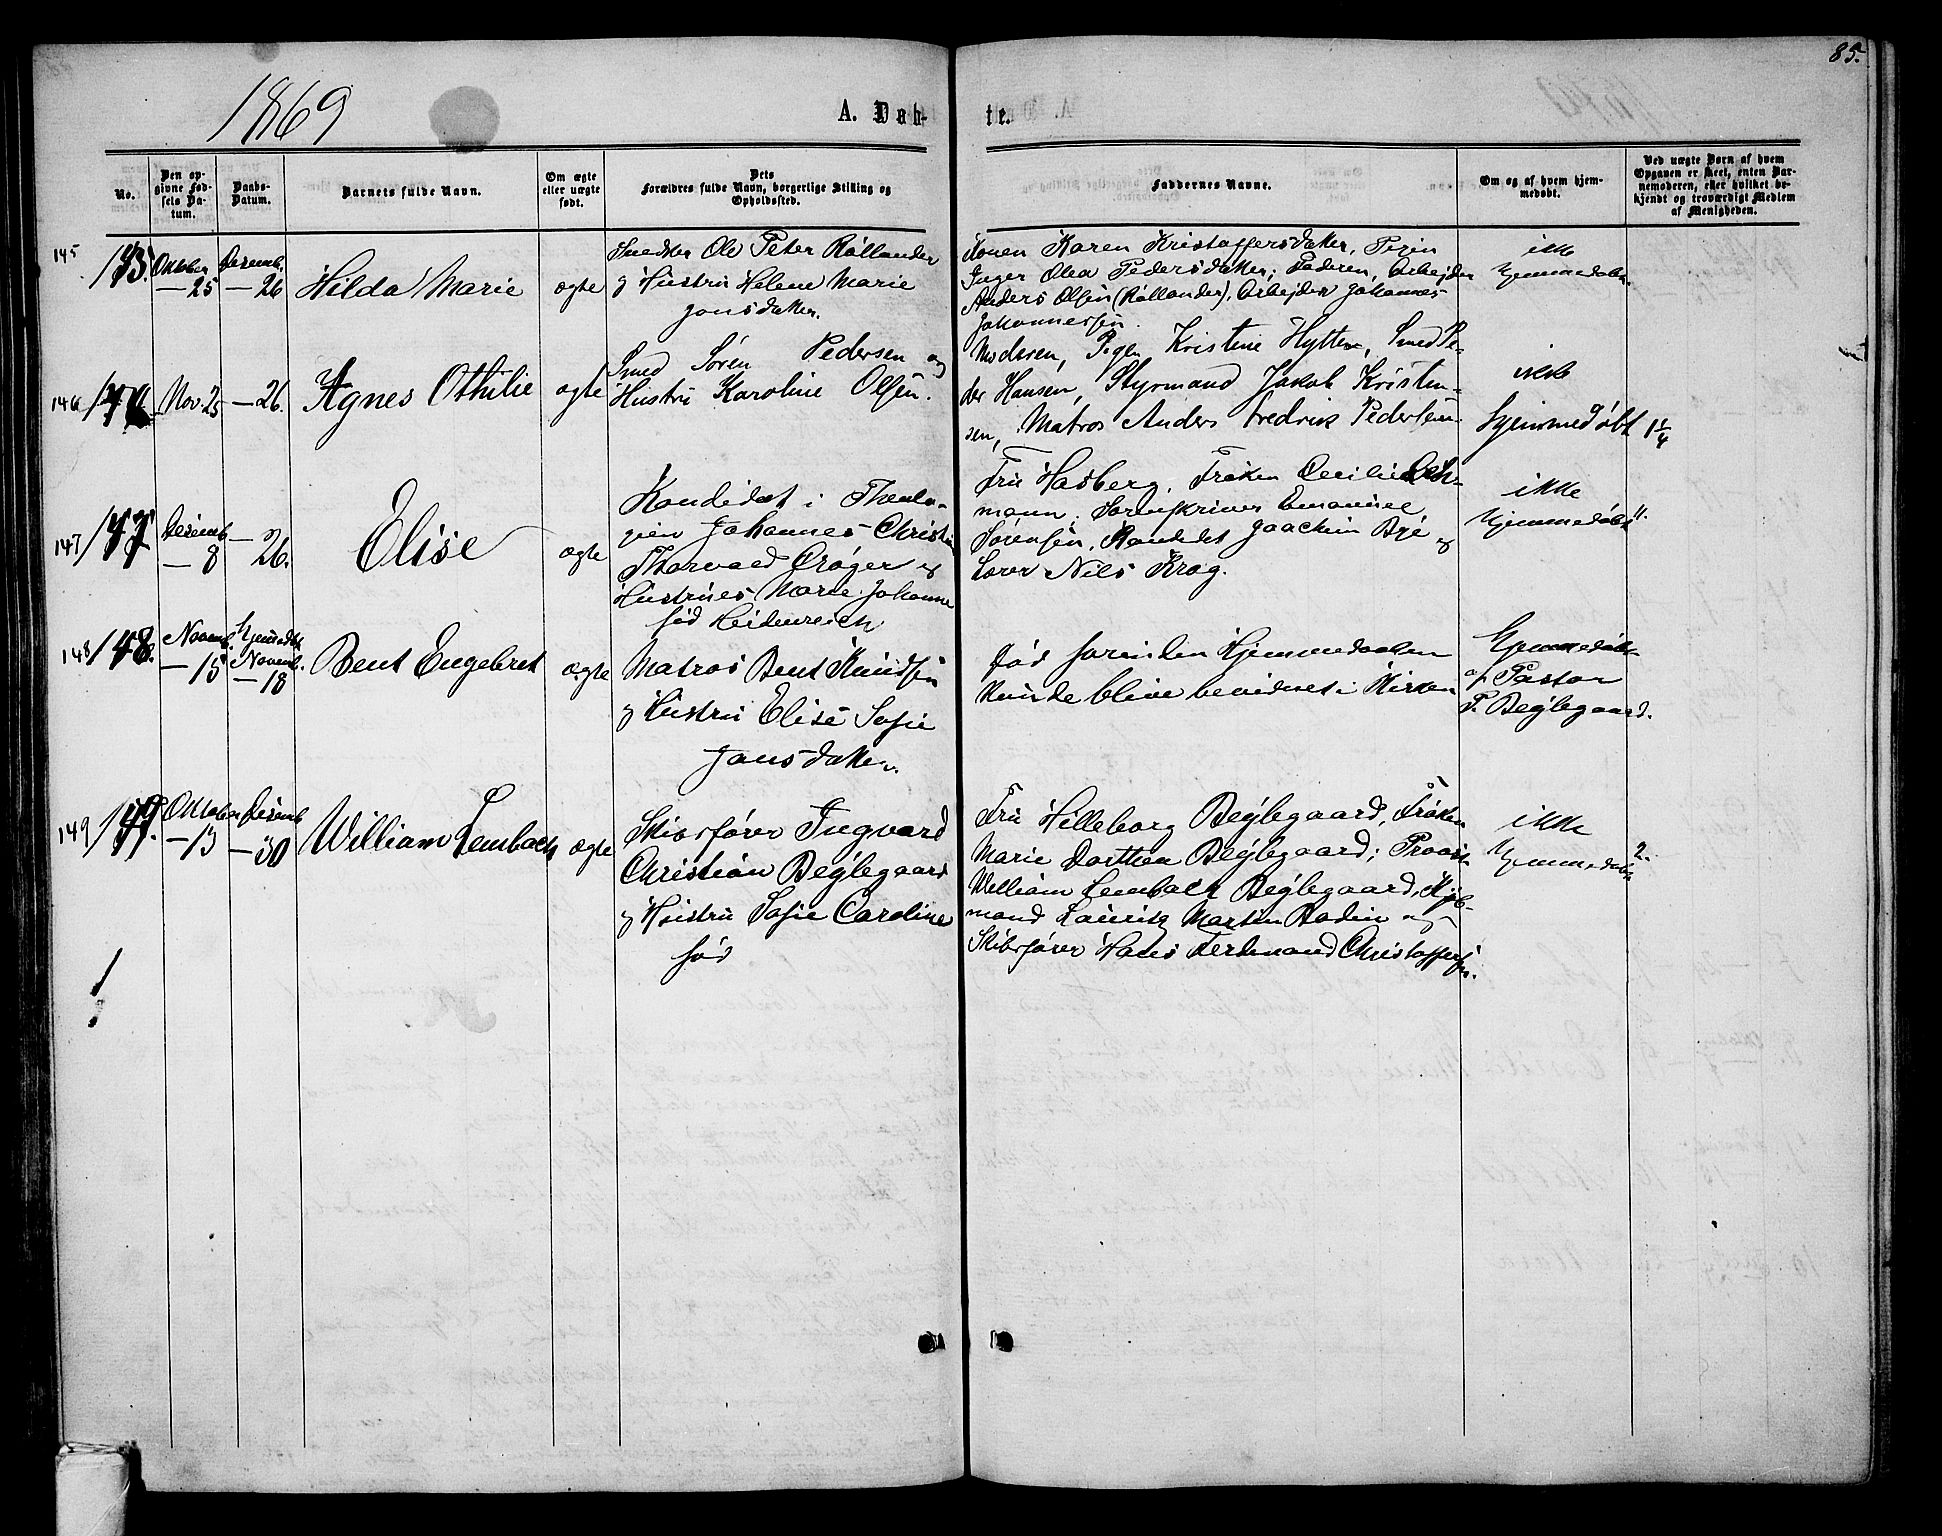 85.
1869
A. Daab-
te.
No.
Den op-
givne Fød-
sels Da-
tum.
Daabs-
Datum.
Barnets fulde Navn.
Om ægte
eller uægte
født.
Dets
Forældres fulde Navn, borgerlige Stilling og
Opholdssted.
Faddernes Navne.
Om og af hvem hjem-
medøbt.
Ved uægte Børn af hvem
Opgaven er skeet, enten Bar-
nemoderen, eller hvilket be-
kjendt og troværdigt Medlem
af Menigheden.
145
Oktober
— 25
Desemb.
— 26
Hilda Marie
ægte
Snedker Ole Peter Røllander
og Hustru Helene Marie
Jonsdatter.
Konen Karen Kristoffersdatter, Pigen
Inger Olea Pedersdatter; Faderen, Arbejder
Anders Olsen (Røllander), Arbejder Johannes
Johannessen.
ikke
hjemmedøbt.
146
Nov. 25
— 26.
Agnes Othilie
ægte
Smed Søren Pedersen og
Hustru Karoline Olsen.
Moderen, Pigen Kristine Hytten, Smed Pe-
der Hansen, Styrmand Jakob Kristen-
sen, Matros Anders Fredrik Pedersen
ikke
hjemmedøbt
147
147
Desemb.
— 8
—
26.
Elise
ægte
Kandidat i Theolo-
gien Johannes Christian
Thorvald Crøger og
Hustrues Marie Johanne
fød Heidenreich
Fru Hasberg, Frøken Cecilie
mann, Sorenskriver Emanuel
Sørensen, Kandidat Joachim Bye og
Lærer Nils Krog.
ikke
hjemmedøbt
148
148.
Novemb.
— 15
Hjemmedøbt
Novemb.
— 18
Bent Engebret
ægte
Matros Bent Knudsen
og Hustru Elise Sofie
Jansdatter.
død forinden Hjemmedaaben
kunde blive bevidnet i Kirken
Hjemmedøbt
af Pastor
F. Bejlegaard.
149
149.
Oktober
— 13
Desemb
— 30
William Lembach
ægte
Skibsfører Ingvard
Christian Bejlegaard
og Hustru Sofie Caroline
fød
Fru Hilleborg Bejlegaard, Frøken
Marie Dorthea Bejlegaard; Provst
William Lembach Bejlegaard, Kjøb-
mand Lauritz Martin Bodin og
Skibsfører Hans Ferdinand Christoffersen.
ikke
hjemmedøbt
2.